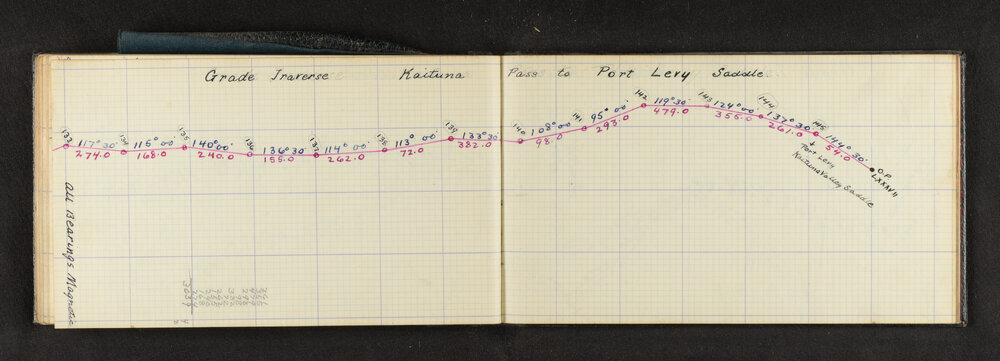 Grade Traverse Kaituna Pass to Port Levy Saddle
133 117°30' 274.0
134 115°00' 168.0
135 140°00' 240.0
136 136°30' 155.0
137 114°00' 262.0
138 113°00' 72.0
139 133°30' 382.0
140 108°00' 98.0
141 95°00' 293.0
142 119°30' 479.0
143 124°00' 355.0
144 137°30' 261.0
145 144°30' 54.0
O.P. LXXXVII
Port Levy
Kaituna Valley Saddle
All Bearings Magnetic